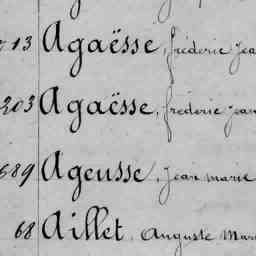 13 Agaësse, frédéric Jea
203 Agaësse, frédéric Jean
689 Ageusse, Jean marie
68 Aillet, Auguste Mar